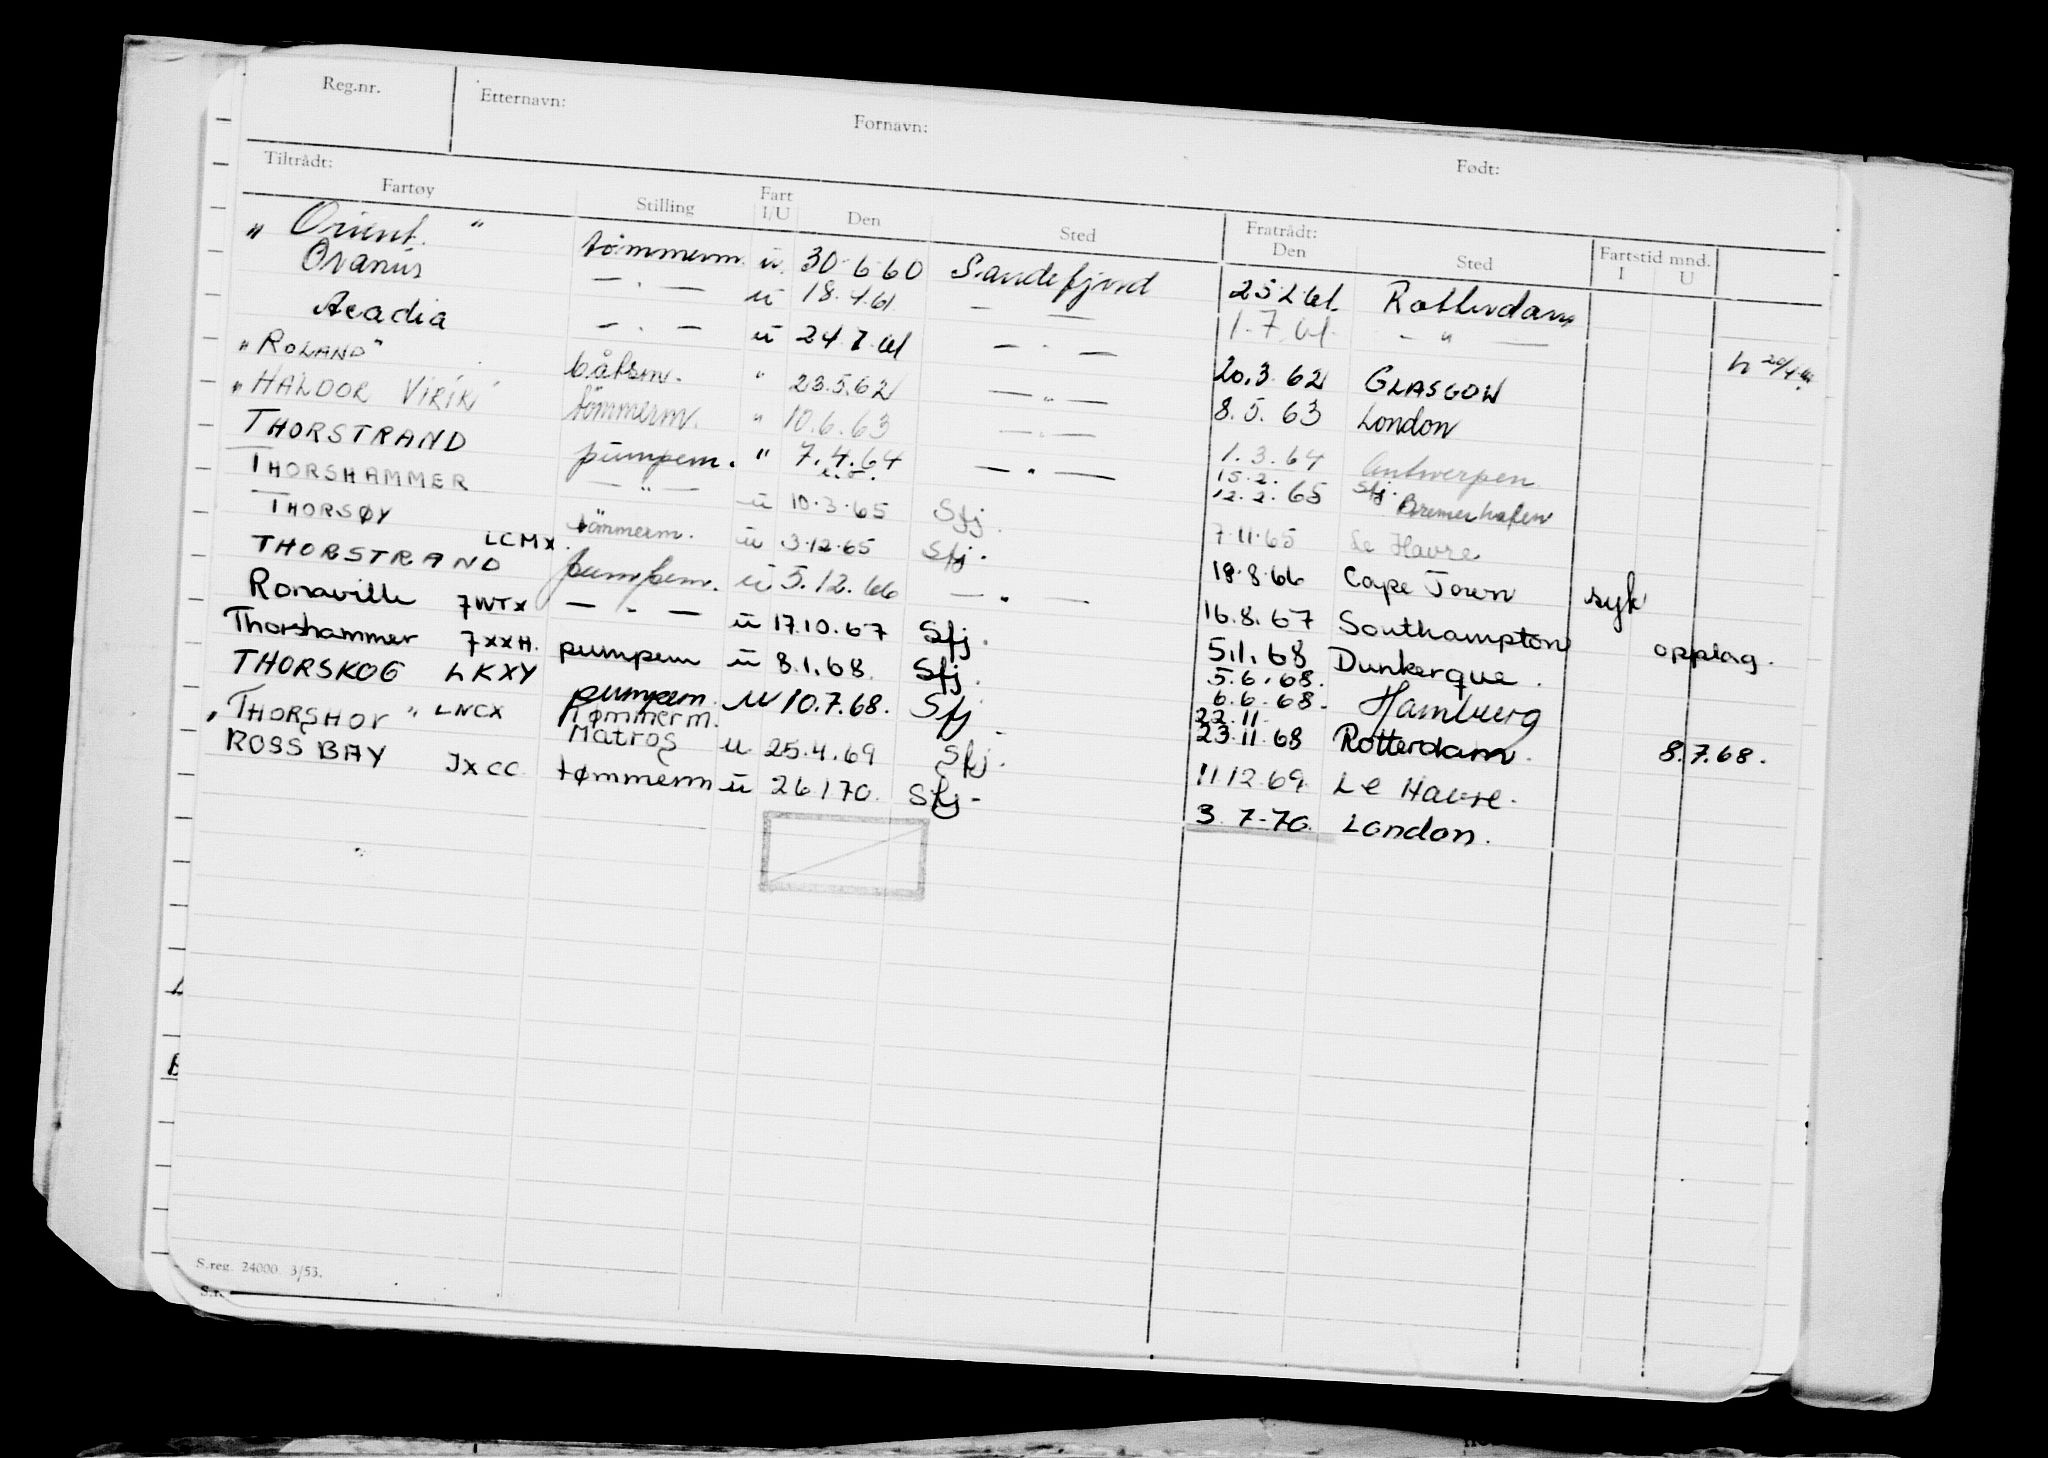 Reg.nr. Etternavn: Fornavn: Født:
Tiltrådt: Fratrådt: Fartstid mnd.
Fartøy Stilling Fart I/U Den Sted Den Sted I U
„ Orient. " tömmerm. u. 30.6.60 Sandefjord 25.2.61. Rotterdam
Oranis — . — u 18.4.61 — — 1.7.61. — " —
Acadia — . — u 24.7.61 — . — 20.3.62 GLASGOW
"ROLAND" båtsm. " 23.5.62 — " — 8.5.63 London
"HALDOR VIRIK" tömmerm. " 10.6.63 — " — 1.3.64 Antwerpen
THORSTRAND pumpem. " 7.4.64 — " — 15.2. 12.2.65 Sfj. Bremerhafen
THORSHAMMER — " — u 10.3.65 Sfj. 7.11.65 Le Havre
THORSØY LCMX. tömmerm. u 3.12.65 Sfj. 18.8.66 Cape Town syk
THORSTRAND pumpem. u 5.12.66 — " — 16.8.67 Southampton opplag.
Ronaville 7WTX — " — u 17.10.67 Sfj. 5.1.68 Dunkerque.
Thorshammer 7XXH. pumpem u 8.1.68. Sfj. 5.6.68. 6.6.68. Hamburg
THORSKOG LKXY pumpem. u 10.7.68. Sfj 22.11 23.11.68 Rotterdam. 8.7.68.
„THORSHOV" LNCX Tømmerm. Matros u 25.4.69 Sfj. 11.12.69. Le Havre.
ROSS BAY JXCC tømmerm u 26 1 70. Sfj- 3.7-70. London.
S.reg. 24000. 3/53.